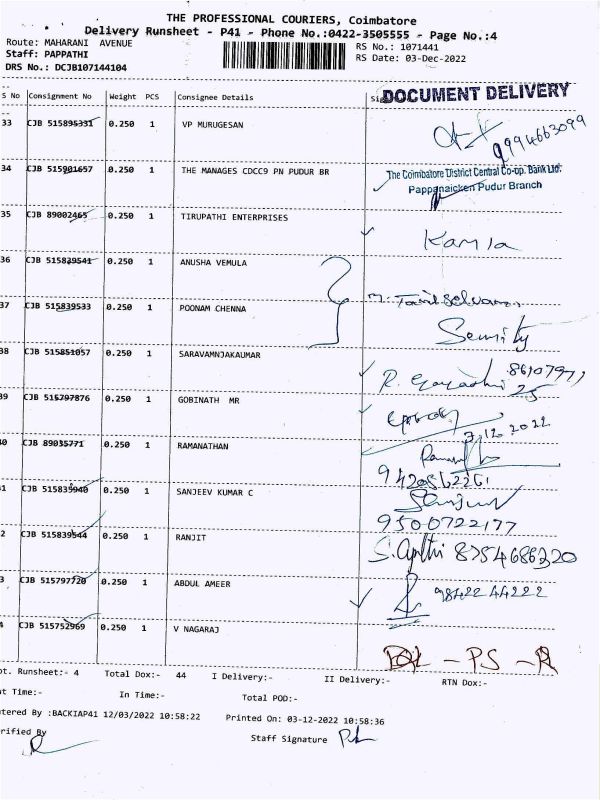 THE PROFESSIONAL COURIERS, Coimbatore
Delivery Runsheet - P41 - Phone No.:0422-3505555 - Page No.:4
Route: MAHARANI AVENUE
Staff: PAPPATHI
DRS No.: DCJB107144104
RS No.: 1071441
RS Date: 03-Dec-2022
S No Consignment No Weight PCS Consignee Details
DOCUMENT DELIVERY
33 CJB 515895331 0.250 1 VP MURUGESAN
9994663099
34 CJB 515901657 0.250 1 THE MANAGES CDCC9 PN PUDUR BR
The Coimbatore District Central Co-op. Bank Ltd.
Pappanaicken Pudur Branch
35 CJB 89002465 0.250 1 TIRUPATHI ENTERPRISES
Kamla
36 CJB 515839541 0.250 1 ANUSHA VEMULA
37 CJB 515839533 0.250 1 POONAM CHENNA
M. Tamil Selvam
Security
38 CJB 515851057 0.250 1 SARAVAMNJAKAUMAR
R. Gayathri 86107971
25
39 CJB 515797876 0.250 1 GOBINATH MR
3.12.2022
40 CJB 89035771 0.250 1 RAMANATHAN
9420562261
41 CJB 515839940 0.250 1 SANJEEV KUMAR C
9500722177
2 CJB 515839544 0.250 1 RANJIT
8754686320
3 CJB 515797720 0.250 1 ABDUL AMEER
98422 44222
4 CJB 515752969 0.250 1 V NAGARAJ
- PS - R
ot. Runsheet:- 4 Total Dox:- 44 I Delivery:- II Delivery:- RTN Dox:-
ut Time:- In Time:- Total POD:-
tered By :BACKIAP41 12/03/2022 10:58:22 Printed On: 03-12-2022 10:58:36
rified By
Staff Signature